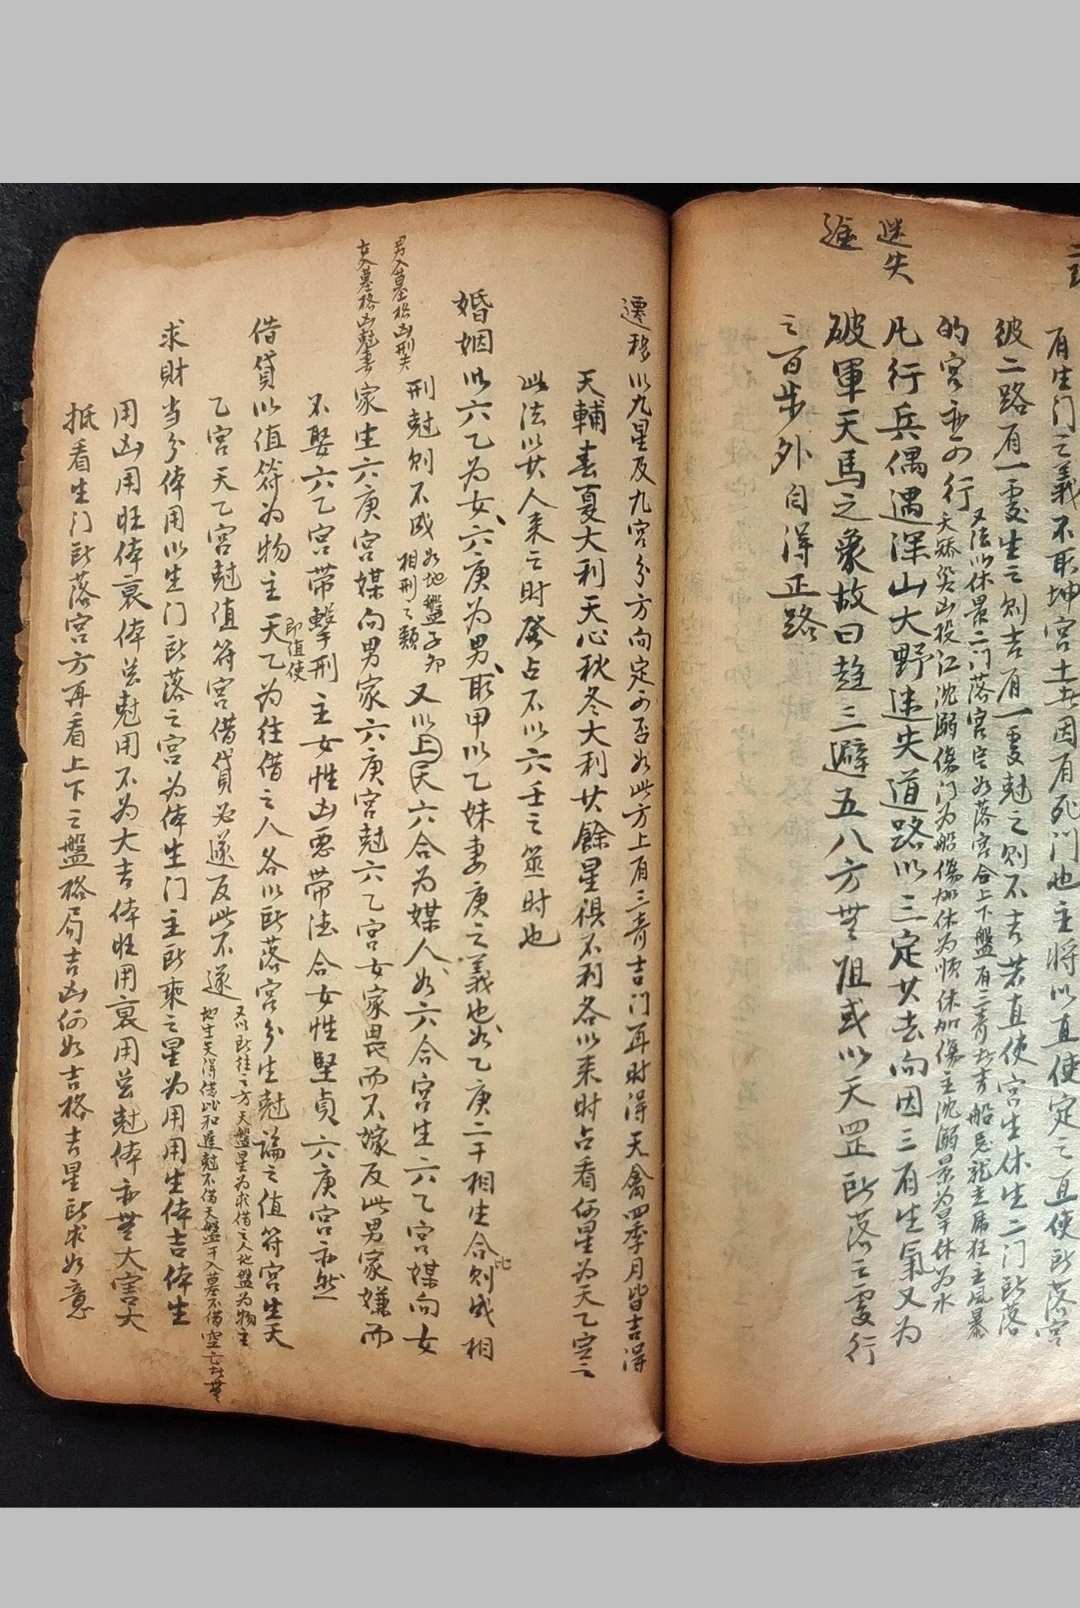 有生门之義不取坤宮土者因有死门也主將以直使定之直使所落宮
彼二路有一處生之則吉有一處尅之則不吉若直使宮生休生二门所落
的宮亦可行
又法以休景二门落宮定如落宮合上下盤有三奇者吉船忌龍走虎狂主風暴
天矫投江沈溺傷门為船傷加休為順休加傷主沈溺景為旱休為水
迷失
凡行兵偶遇深山大野迷失道路以三定其去向因三有生氣又為
破軍天馬之象故曰趋三避五八方無阻或以天罡所落之處行
之百步外自得正路
遷移以九星及九宮分方向定可否如此方上有三奇吉门再时得天禽四季月皆吉得
天輔春夏大利天心秋冬大利其餘星俱不利各以来时占看何星為天乙定之
此法以其人来之时發占不以六壬之筮时也
婚姻以六乙為女六庚為男取甲以乙妹妻庚之義也如乙庚二干相生合比則成相
刑尅則不成
如地盤子卯
相刑之類
又以六合為媒人如六合宮生六乙宮媒向女
男入墓格凶刑夫
女入墓格凶尅妻
家生六庚宮媒向男家六庚宮尅六乙宮女家畏而不嫁反此男家嫌而
不娶六乙宮带擊刑主女性凶恶带德合女性堅貞六庚宮亦然
借貸以值符為物主天乙
即值使
為往借之人各以所落宮分生尅論之值符宮生天
乙宮天乙宮尅值符宮借貸必遂反此不遂
又以所往之方天盤星為求借之人地盤為物主
地生天得借比和遲尅不借天盤干入墓不借空亡者無
求財当分体用以生门所落之宮為体生门主所乘之星為用用生体吉体生
用凶用旺体衰体并尅用不為大吉体旺用衰用并尅体亦無大害大
抵看生门所落宮方再看上下之盤格局吉凶何如吉格吉星所求如意